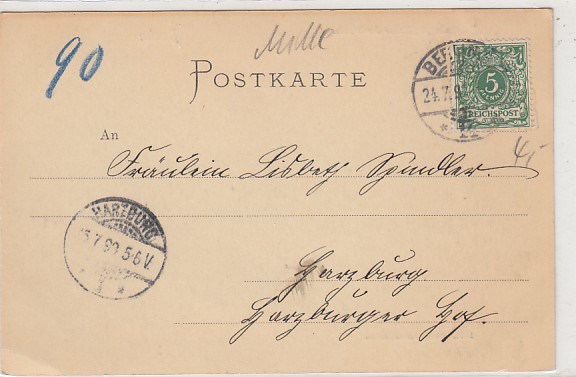 90
Mille
POSTKARTE
BERLIN
24.7.9
5
REICHSPOST
4,-
An
Fräulein Lisbeth Spindler.
HARZBURG
5.7.99.5-6V.
Harzburg
Harzburger Hof.